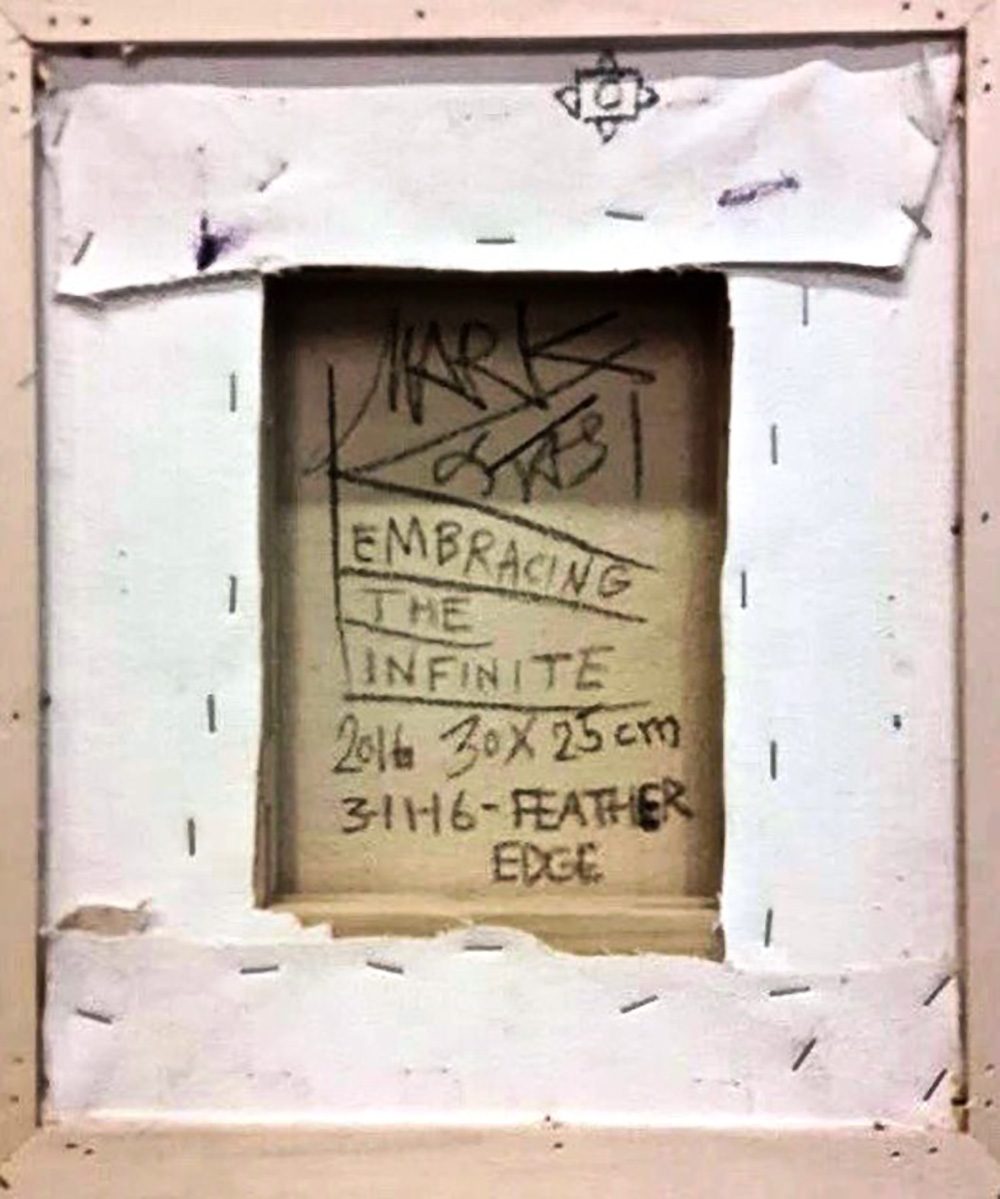 MARK
KOSTABI
EMBRACING
THE
INFINITE
2016 30 X 25 cm
3-11-16 - FEATHER
EDGE